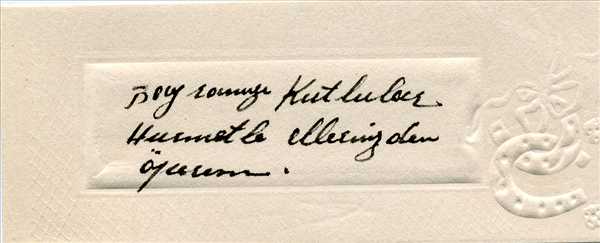 Bayramınızı Kutlular
Hürmetle ellerinizden
Öperim.